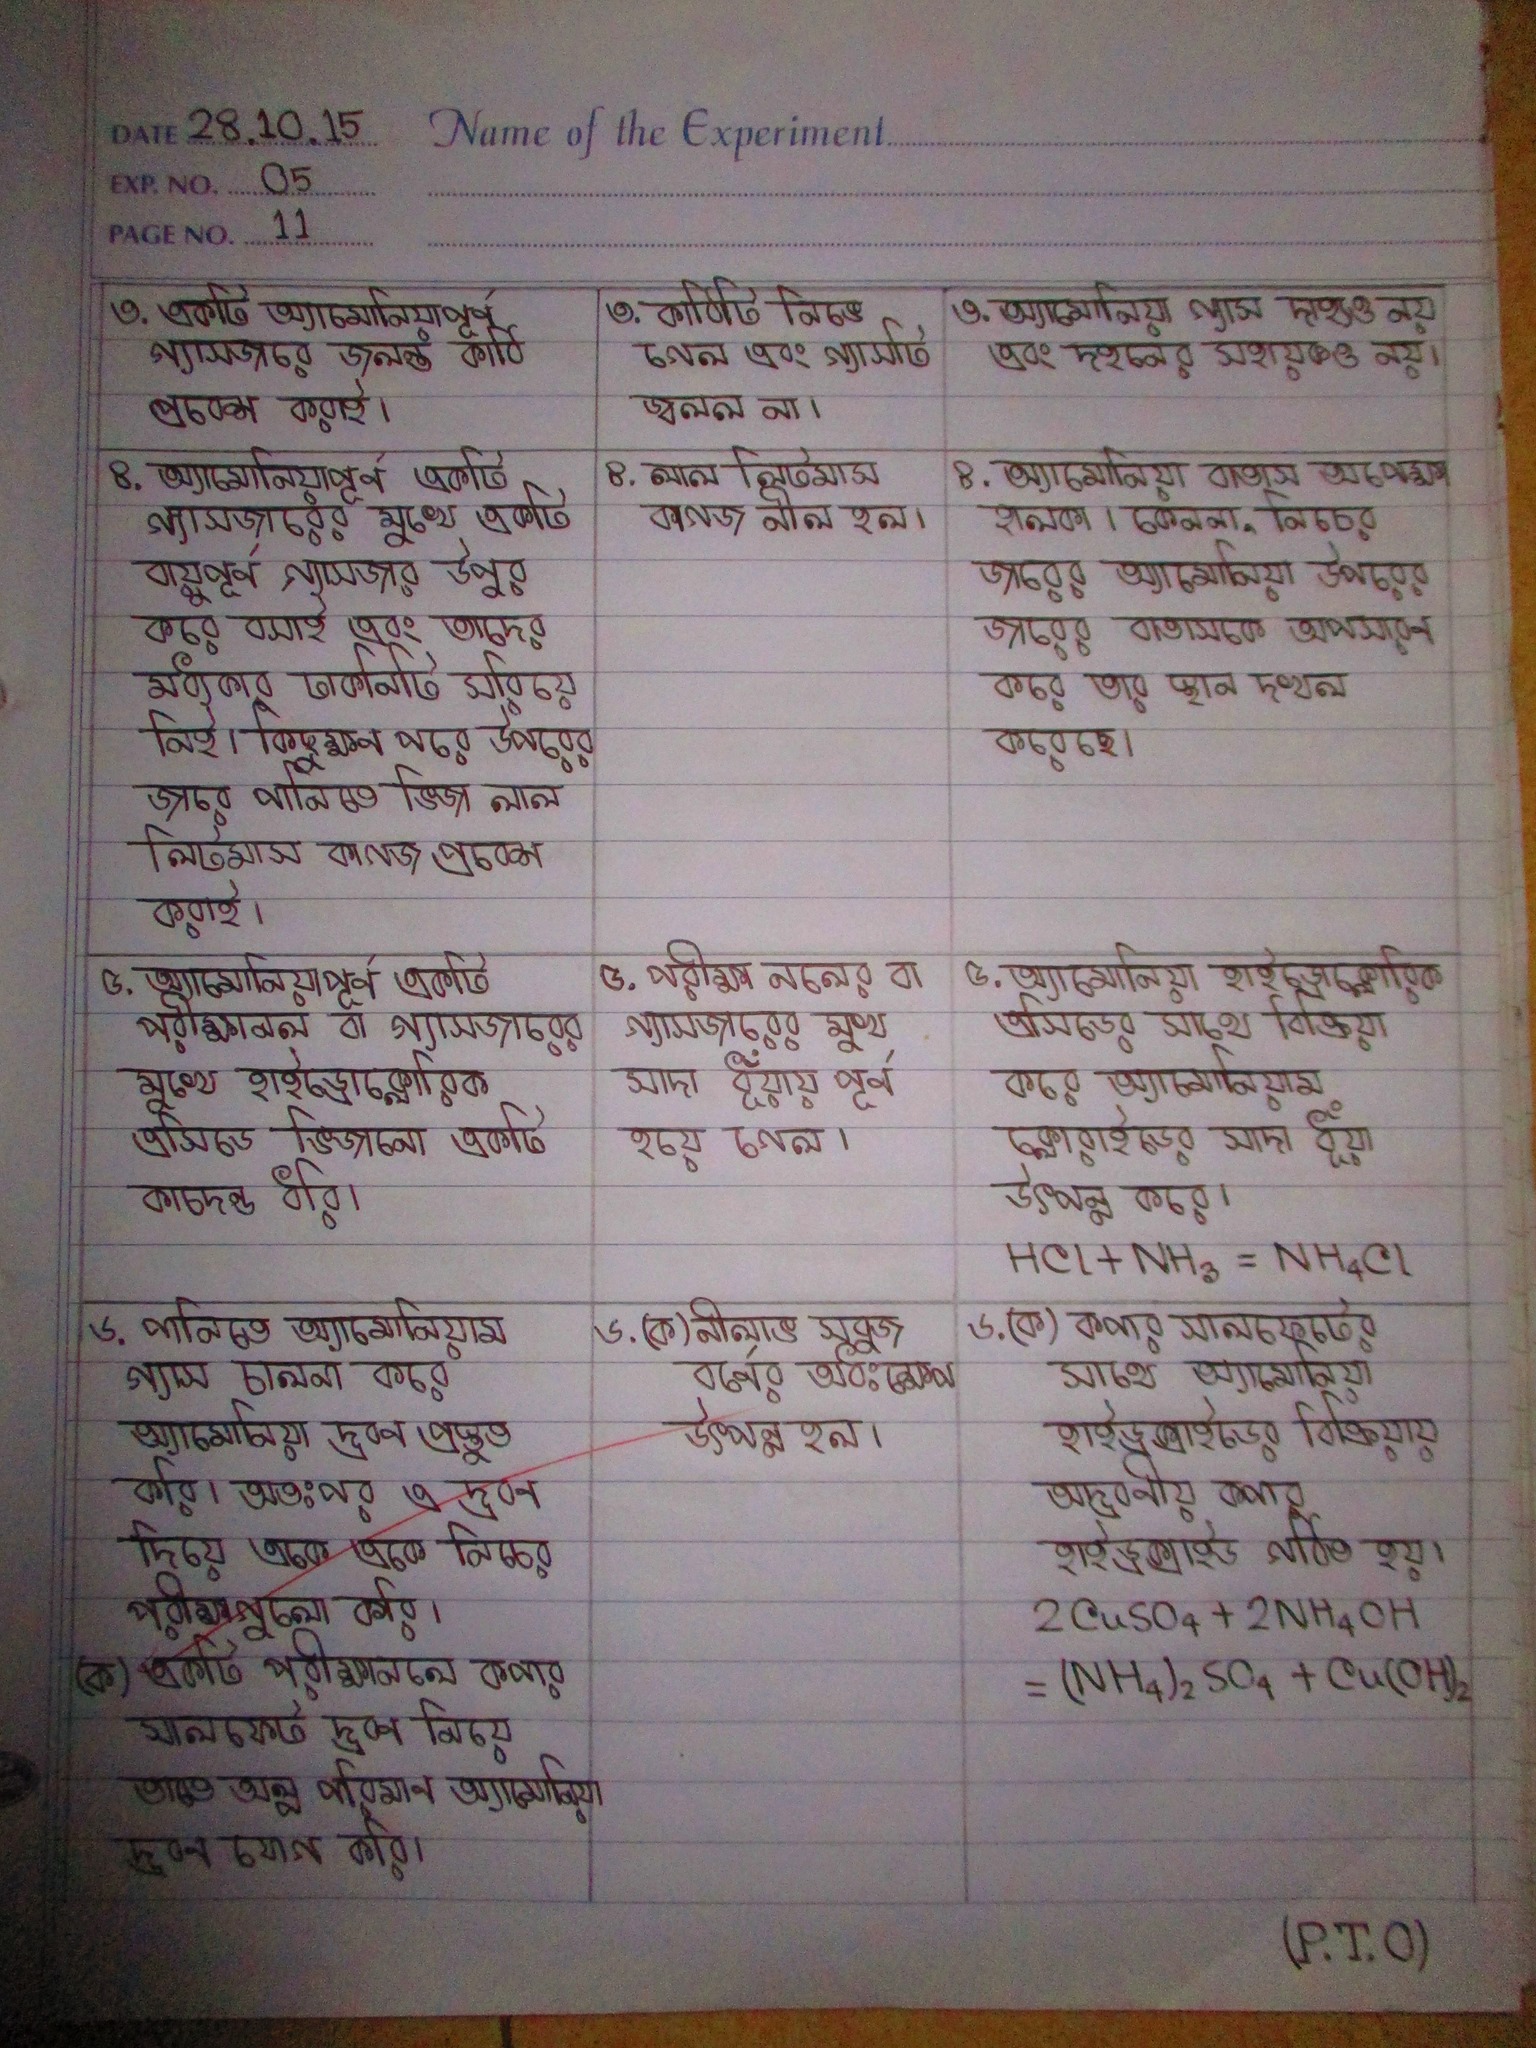 DATE 28.10.15
Name of the Experiment
EXP. NO. 05
PAGE NO. 11
৩. একটি অ্যামোনিয়াপূর্ণ
গ্যাসজারে জলন্ত কাঠি
প্রবেশ করাই।
৩. কাঠিটি নিভে
গেল এবং গ্যাসটি
জ্বলল না।
৩. অ্যামোনিয়া গ্যাস দাহ্যও নয়
এবং দহনের সহায়কও নয়।
৪. অ্যামোনিয়াপূর্ণ একটি
গ্যাসজারের মুখে একটি
বায়ুপূর্ণ গ্যাসজার উপুর
করে বসাই এবং তাদের
মধ্যকার ঢাকনিটি সরিয়ে
নিই। কিছুক্ষন পরে উপরের
জারে পানিতে ভিজা লাল
লিটমাস কাগজ প্রবেশ
করাই।
৪. লাল লিটমাস
কাগজ নীল হল।
৪. অ্যামোনিয়া বাতাস অপেক্ষা
হালকা। কেননা, নিচের
জারের অ্যামোনিয়া উপরের
জারের বাতাসকে অপসারণ
করে তার স্থান দখল
করেছে।
৫. অ্যামোনিয়াপূর্ণ একটি
পরীক্ষানল বা গ্যাসজারের
মুখে হাইড্রোক্লোরিক
এসিডে ভিজানো একটি
কাচদন্ড ধরি।
৫. পরীক্ষা নলের বা
গ্যাসজারের মুখ
সাদা ধূঁয়ায় পূর্ণ
হয়ে গেল।
৫. অ্যামোনিয়া হাইড্রোক্লোরিক
এসিডের সাথে বিক্রিয়া
করে অ্যামোনিয়াম
ক্লোরাইডের সাদা ধূঁয়া
উৎপন্ন করে।
HCl + NH₃ = NH₄Cl
৬. পানিতে অ্যামোনিয়াম
গ্যাস চালনা করে
অ্যামোনিয়া দ্রবণ প্রস্তুত
করি। অতঃপর এ দ্রবণ
দিয়ে একে একে নিচের
পরীক্ষাগুলো করি।
(ক) একটি পরীক্ষানলে কপার
সালফেট দ্রবণ নিয়ে
তাতে অল্প পরিমাণ অ্যামোনিয়া
দ্রবণ যোগ করি।
৬. (ক) নীলাভ সবুজ
বর্ণের অধঃক্ষেপ
উৎপন্ন হল।
৬. (ক) কপার সালফেটের
সাথে অ্যামোনিয়া
হাইড্রক্সাইডের বিক্রিয়ায়
অদ্রবণীয় কপার
হাইড্রক্সাইড গঠিত হয়।
2CuSO₄ + 2NH₄OH
= (NH₄)₂SO₄ + Cu(OH)₂
(P.T.O)